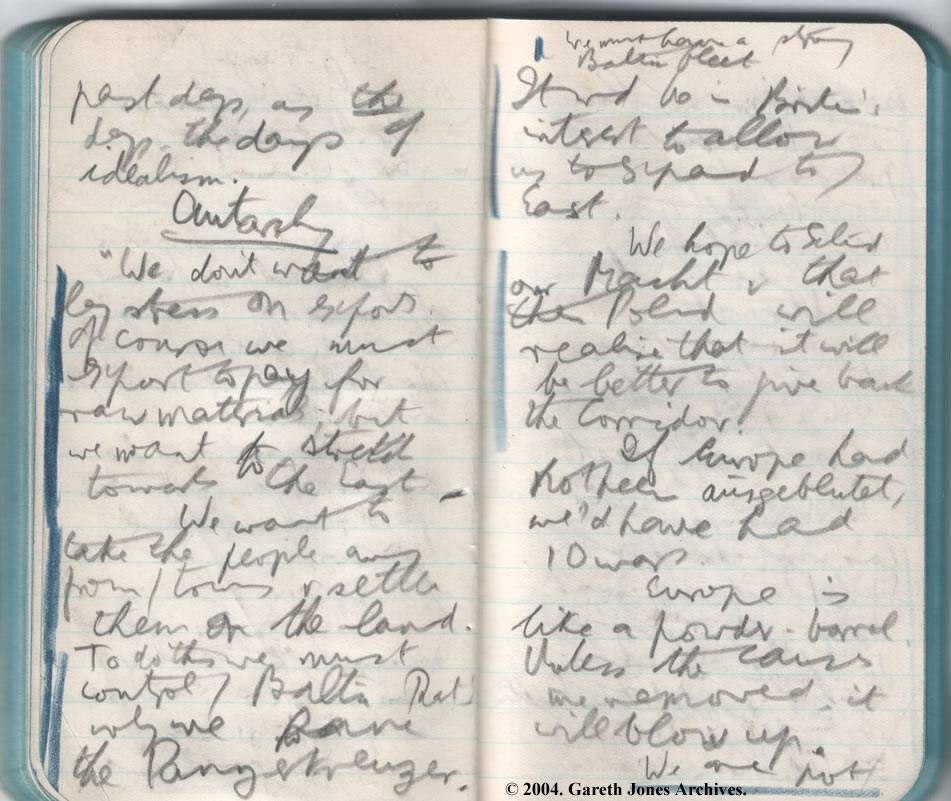 past days, as the
days. the days of
idealism.
Autarchy
"We don't want to
lay stress on exports.
Of course we must
export to pay for
raw materials, but
we want to stretch
towards the East.
We want to
take the people away
from / towns & settle
them on the land.
To do this we must
control / Baltic. That's
why we have
the Panzerkreuzer.
We must have a strong
Baltic fleet
It wd be in Britain's
interest to allow
us to expand to /
East.
We hope to
our Macht & that
then Poland will
realise that it will
be better to give back
the Corridor.
If Europe had
not been ausgeblutet,
we'd have had
10 wars.
Europe is
like a powder-barrel.
Unless the causes
are removed, it
will blow up.
We are not
© 2004. Gareth Jones Archives.